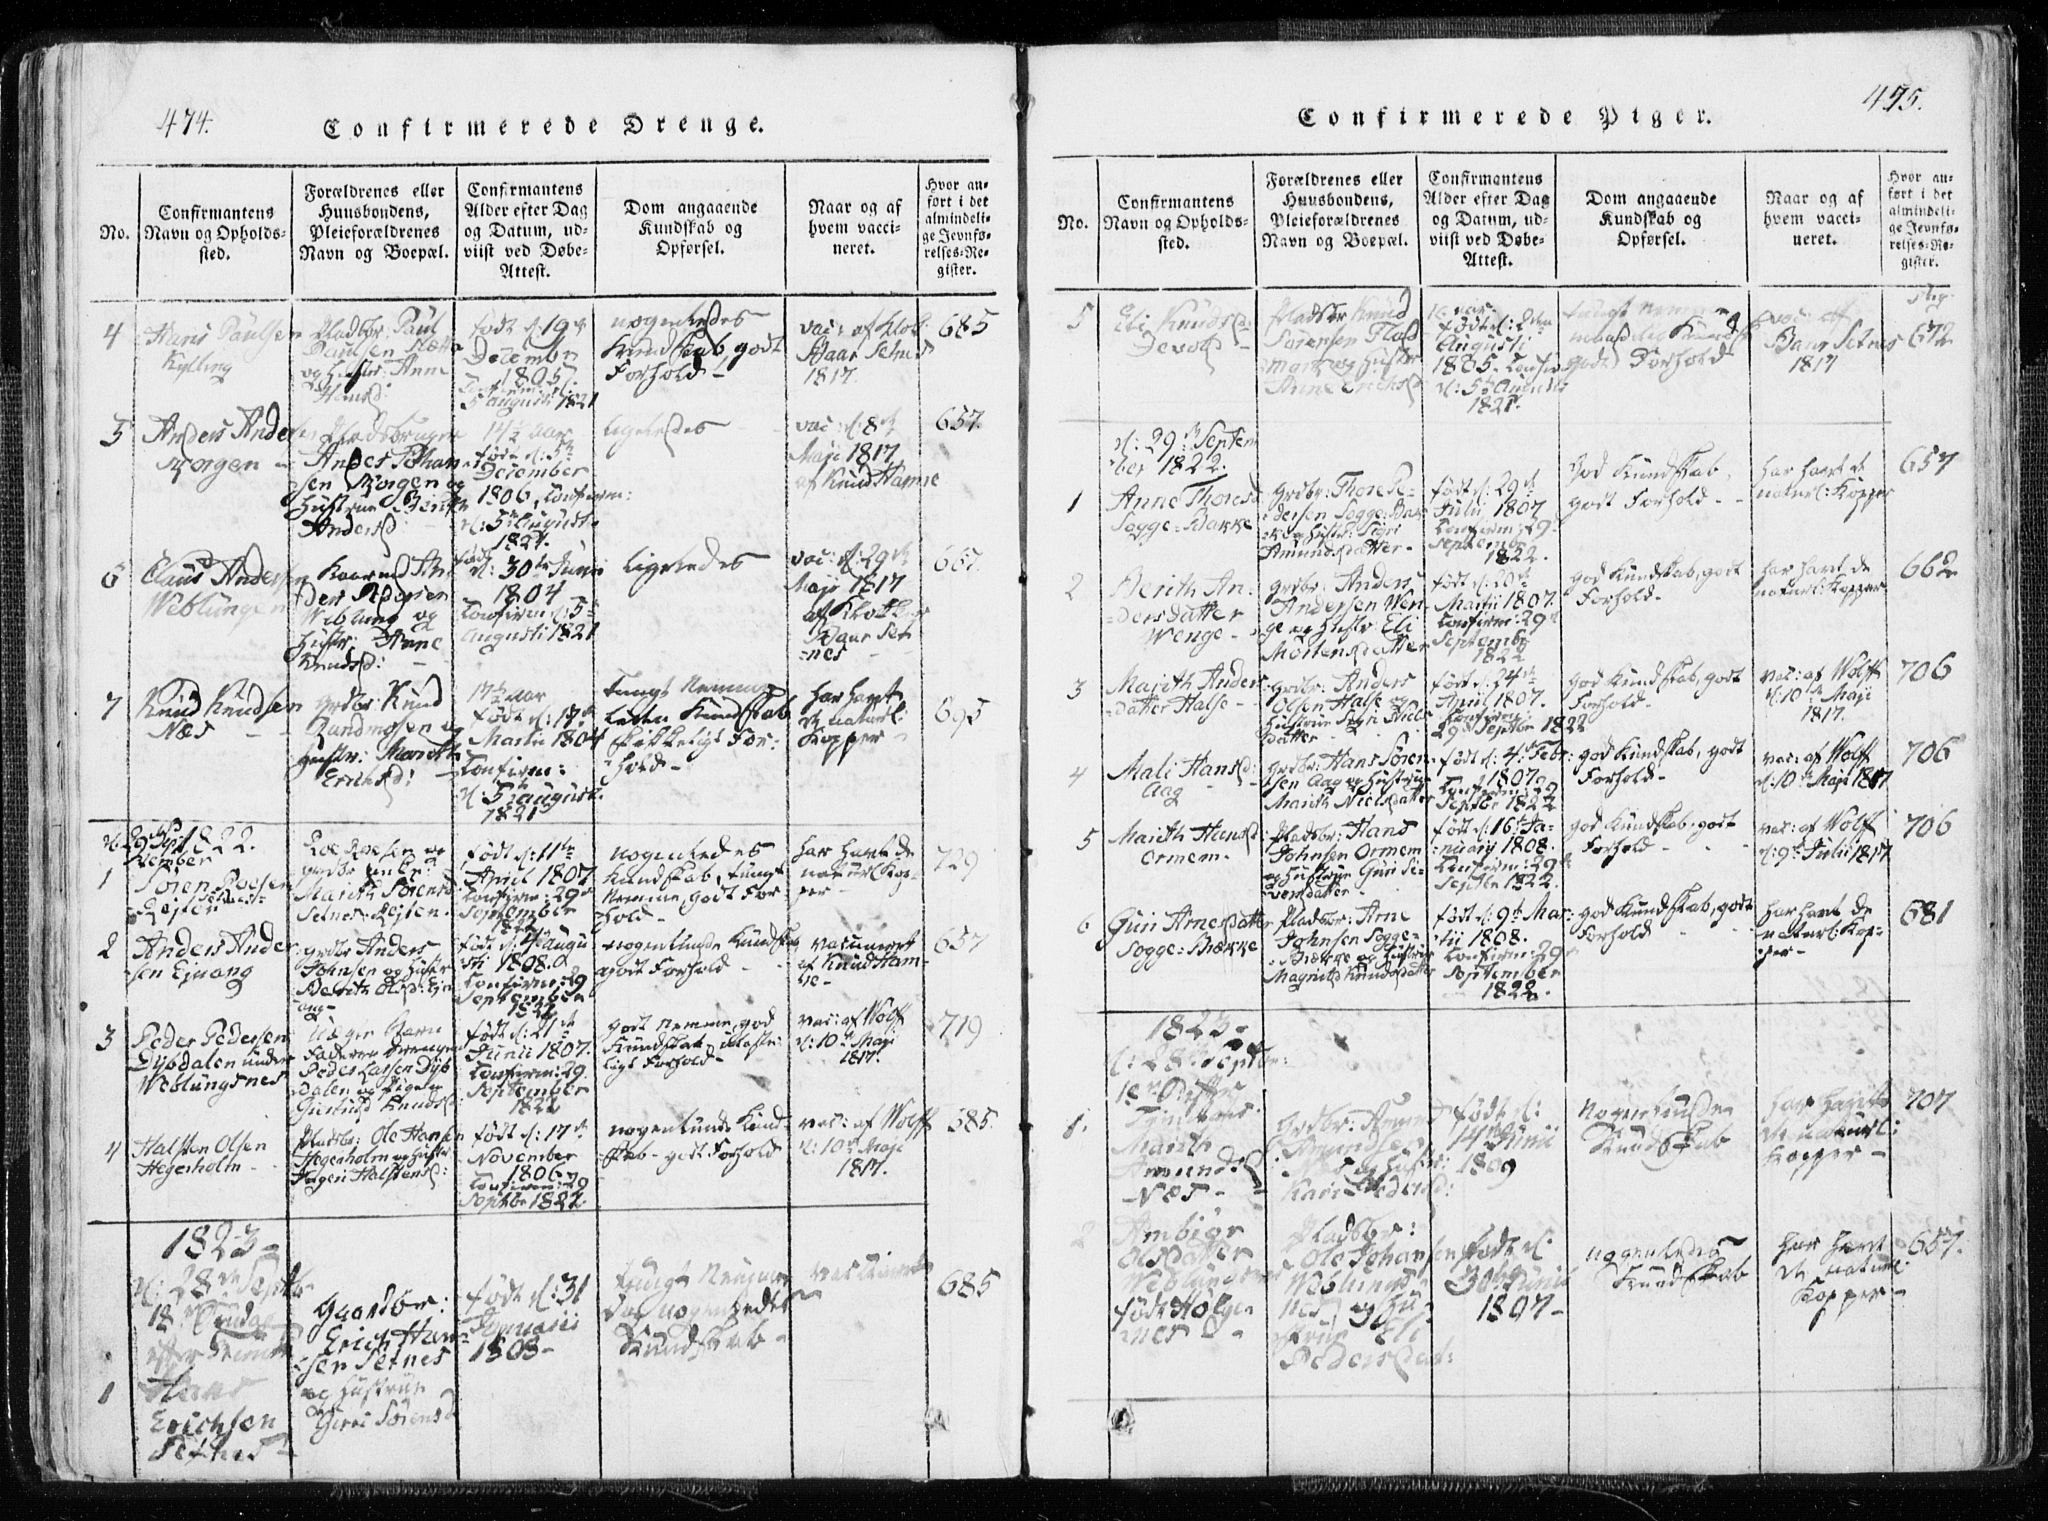 474.
Confirmerede Drenge.
No.
Confirmantens
Navn og Opholds-
sted.
Forældrenes eller
Huusbondens,
Pleieforældrenes
Navn og Boepæl.
Confirmantens
Alder efter Dag
og Datum, ud-
viist ved Døbe-
Attest.
Dom angaaende
Kundskab og
Opførsel.
Naar og af
hvem vacci-
neret.
Hvor an-
ført i det
almindeli-
ge Jevnfø-
relses-Re-
gister.
4
Hans Paulsen
Kylling
Pladsbr: Paul
Paulsen
og Hustr: Anne
født d: 19de
Decembr
1805
5 Augusti 1821
nogenledes
Kundskab, godt
Forhold
vac: af Klok:
Baar Setnes
1817.
685
5
Anders Anders
Korgen
Pladsbruger
Anders Johan
sen Korgen og
Hustrue
Andersd
14½ Aar
født d: 5te
December
1806, Confirm:
d: 5te Augusti
1821.
ligeledes
vac: d: 8de
Maji 1817
af Knud Hamre
657.
6
Claus Anders
Weblungen
An
ders Pedersen
Weblung og
Hustr: Anne
Knudsd:
født
d: 30te Junii
1804
Confirm d: 5te
Augusti 1821
ligeledes
vac: d: 29de
Maji 1817
af Klokker
Baar Set
nes
657.
7
Knud Knudsen
Næs
Grdbr: Knud
og
Hustr: Marith
Ericksd:
17½ Aar
født d: 17de
Martii 1804
Confirm:
d: 5te Augusti
1821
tungt Nemme
liden Kundskab
skikkeligt For:
hold
har havt
de naturl:
Kopper
695
d: 29 Sept 1822.
tember
1
Søren Roesen
Rejten
Roe Roesen og
Marith Sørensd
Setnes Rejten
født d: 11te
April 1807
Confirm: 29de
September
1822
nogenledes
Kundskab, tungt
Nemme, godt For
hold
har havt de
naturl Kop-
per
729
2
Anders Ander
sen Ejnang
grdbr Anders
Johnsen og Hustr
Berith Olsd: Ejn
ang
født d: 4de Augu
sti 1808.
Confirm: 29
September
1822
nogenlunde Kundskab
godt Forhold
vaccineret
af Knud Ham-
re
657
3
Peder Pedersen
Dybdalen under
Weblungsnes
Uægte Barn
Faderen Drengen
Peder Larsen Dyb
dalen og Pigen
Giertrud Knudsd
født d: 21de
Junii 1807.
Confirm: 29.
September
1822
godt Nemme, god
Kundskab,
ligt Forhold
vac: af Wolff
d: 10de Maji
1817.
719
4
Halsten Olsen
Hegerholm
Pladsbr: Ole Hansen
Hegerholm og Hustr
Ingeri Halstensd:
født d: 17de
November
1806
Confirm: 29
Septbr 1822
nogenlunde Kund-
skab godt Forhold
vac: af Wolff
d: 10de Maji
1817.
685.
1823
d: 28de Septbr
18de Søndag
efter
1
Hans
Erichsen
Setnes
Gaardbr:
Erich Han-
sen Setnes
og Hustrue
Sørensd
født d: 31
Januarii
1808
tungt Nemme
dog nogenledes
Kundskab
vaccineret
685
475.
Confirmerede Piger.
No.
Confirmantens
Navn og Opholds-
sted.
Forældrenes eller
Huusbondens,
Pleieforældrenes
Navn og Boepæl.
Confirmantens
Alder efter Dag
og Datum, ud-
viist ved Døbe-
Attest.
Dom angaaende
Kundskab og
Opførsel.
Naar og af
hvem vacci-
neret.
Hvor an-
ført i det
almindeli-
ge Jevnfø-
relses-Re-
gister.
5
Eli Knudsd
Devold
Pladsbr Knud
Sørensen Flad
mark og Hustr
Anne Erichsd
født d: 2den
Augusti
1805. Confirm
d: 5te Augusti
1821.
tungt Nemme
Kundsk
godt Forhold
vac: af
Baar Setnes
1817
672
d: 29de Septem
ber 1822.
1
Anne Thoresd
Sogge-Bakke
Grdbr: Thore Pe-
dersen Sogge-Bak
ke og Hustr: Sigri
Amundsdatter
født d: 29de
Julii 1807
Confirm: 29
Septembr
1822.
god Kundskab,
godt Forhold
har havt de
naturl: Kopper
657
2
Berith An-
dersdatter
Wenge
grdbr: Anders
Andersen Wen-
ge og Hustr Eli
Mortensdatter
født d: 20de
Martii 1807.
Confirm: 29de
Septembr
1822
god Kundskab, godt
Forhold
har havt de
naturl: Kopper
662
3
Marith Anders
datter Halse
Grdbr: Anders
Olsen Halse og
Hustrue Niels
datter
født d: 24de
April 1807.
Confirm:
29de Septbr 1822
god Kundskab, godt
Forhold
vac: af Wolff
d: 10de Maji
1817.
706
4
Mali Hansd:
Aag
Grdbr: Hans Søren-
sen Aag og Hustrue
Marith Nielsdatter
født d: 4de Febr:
1807.
Confirm: 29
Septbr 1822
god Kundskab, godt
Forhold
vac: af Wolff
d: 10de Maji 1817
706
5
Marith Hansd
Ormem
Pladsbr: Hans
Johnsen Ormem
og Hustrue Guri Si-
vertsdatter
født d: 16de Ja-
nuarij 1808.
Confirm: 29de
Septbr 1822.
god Kundskab, godt
Forhold
vac: af Wolff
d: 9de Julii 1817
706
6
Guri Arnesdatter
Sogge-Bakke
Pladsbr: Arne
Johnsen Sogge-
Bakke og Hustrue
Magnild Knudsdatter
født d: 9de Mar-
tii 1808.
Confirm: 29de
September
1822.
god Kundskab, godt
Forhold
har havt de
naturl: Kop-
per
681
1823
d: 28de Septbr:
18de
1.
Marith
Amundsd
Næs
Grdbr: Amund
Amundsen
Næs og Hustr:
Kari Pedersd:
født d:
14de Junii
1809
Nogenlunde
Kundskab
har havt
de naturl:
Kopper
707
2
Ambiør
Olsdatter
Weblungsnes
født Holge
nes
Pladsbr:
Ole Johansen
Weblungs-
nes og Hu-
strue Eli
Pedersdat:
født d:
30te Junii
1807
nogenledes
Kundskab
har havt
de naturl:
Kopper
657.